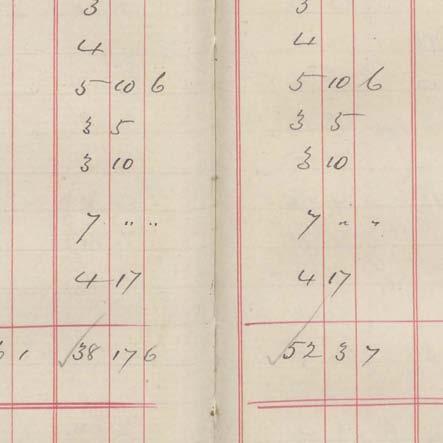 3 3
4 4
5 10 6 5 10 6
3 5 3 5
3 10 3 10
7 " " 7 " "
4 17 4 17
1 ✓38 17 6 ✓52 3 7